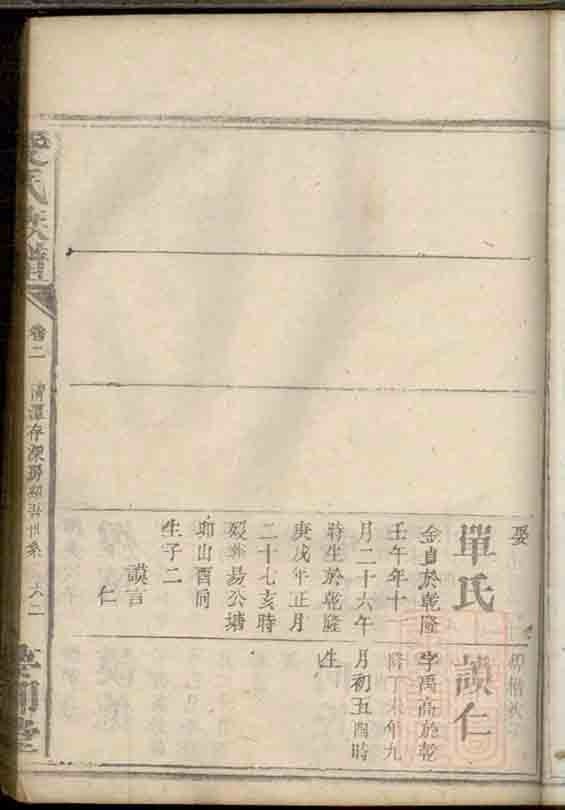 娶
單氏
於乾隆
壬午年十一
月二十六午
時生於乾隆
庚戌年正月
二十七亥時
歿葬易公塘
卯山酉向
生子二
謨言
仁
謨仁
字禹 於乾
隆丁未年九
月初五酉時
生
氏族譜
卷二
清潭存深房 世系
六二